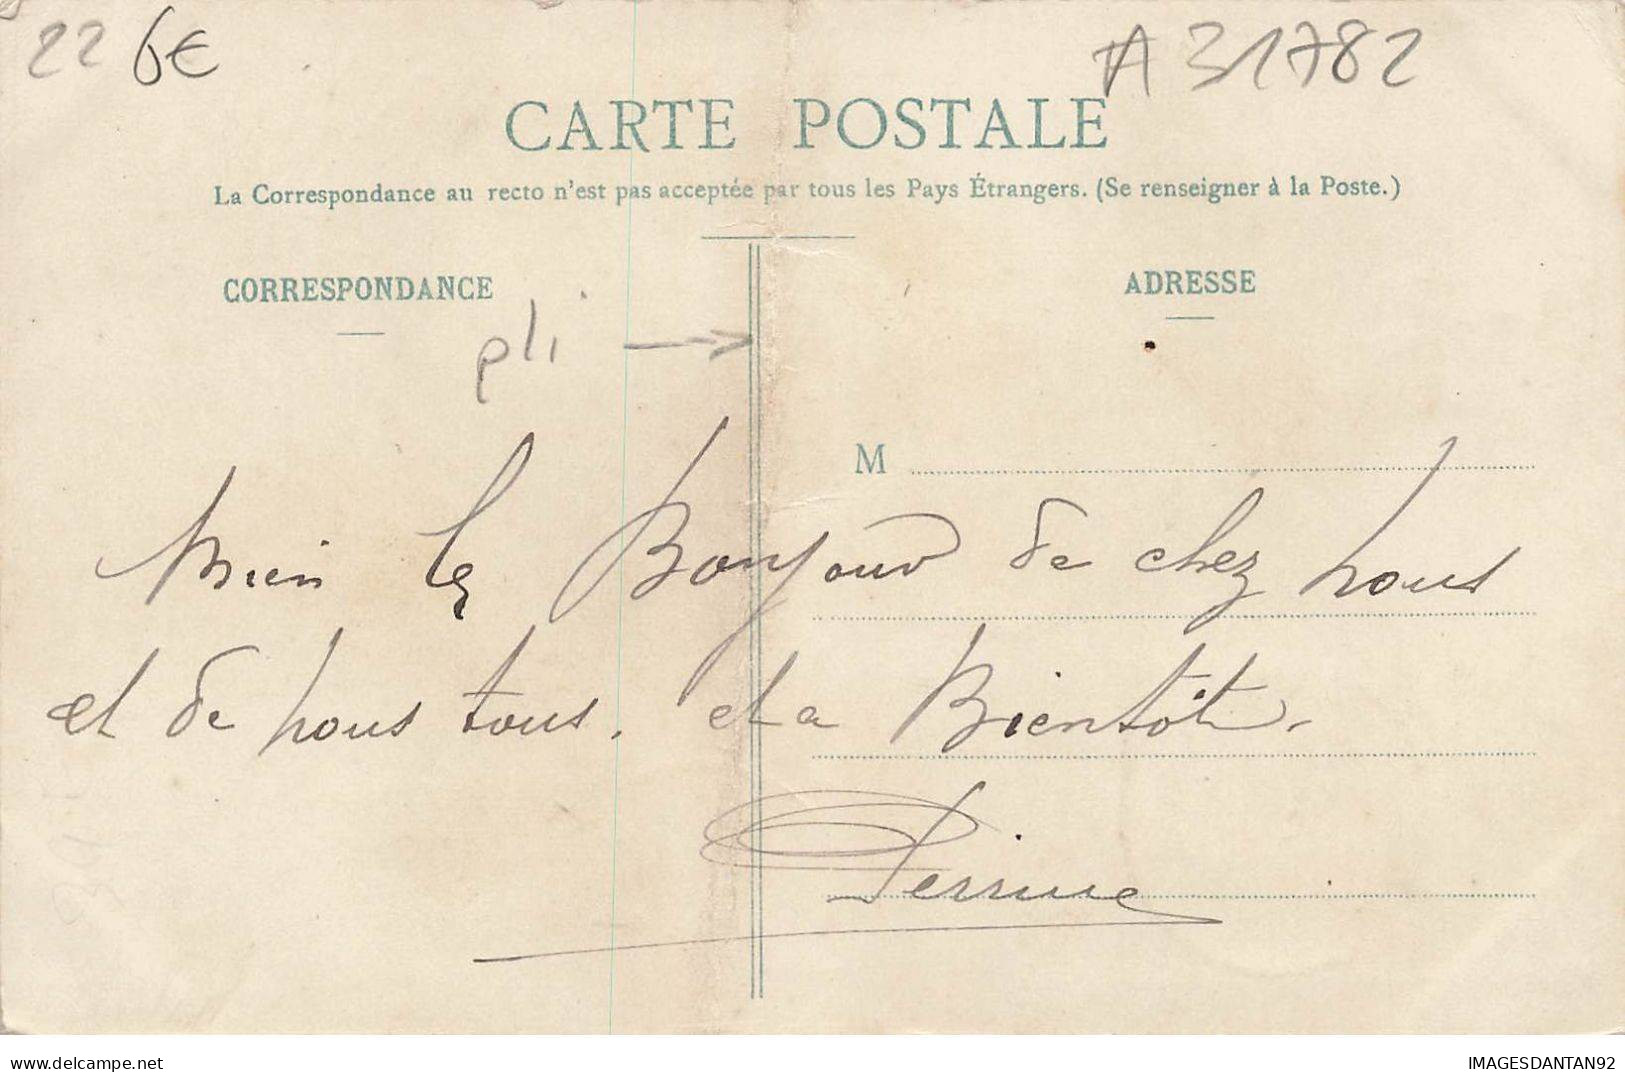 22 6€ A 31782
CARTE POSTALE
La Correspondance au recto n'est pas acceptée par tous les Pays Étrangers. (Se renseigner à la Poste.)
CORRESPONDANCE
ADRESSE
pli
M
Bien le Bonjour de chez nous
et de nous tous. et a Bientôt.
Perrine
delcampe.net
IMAGESDANTAN92